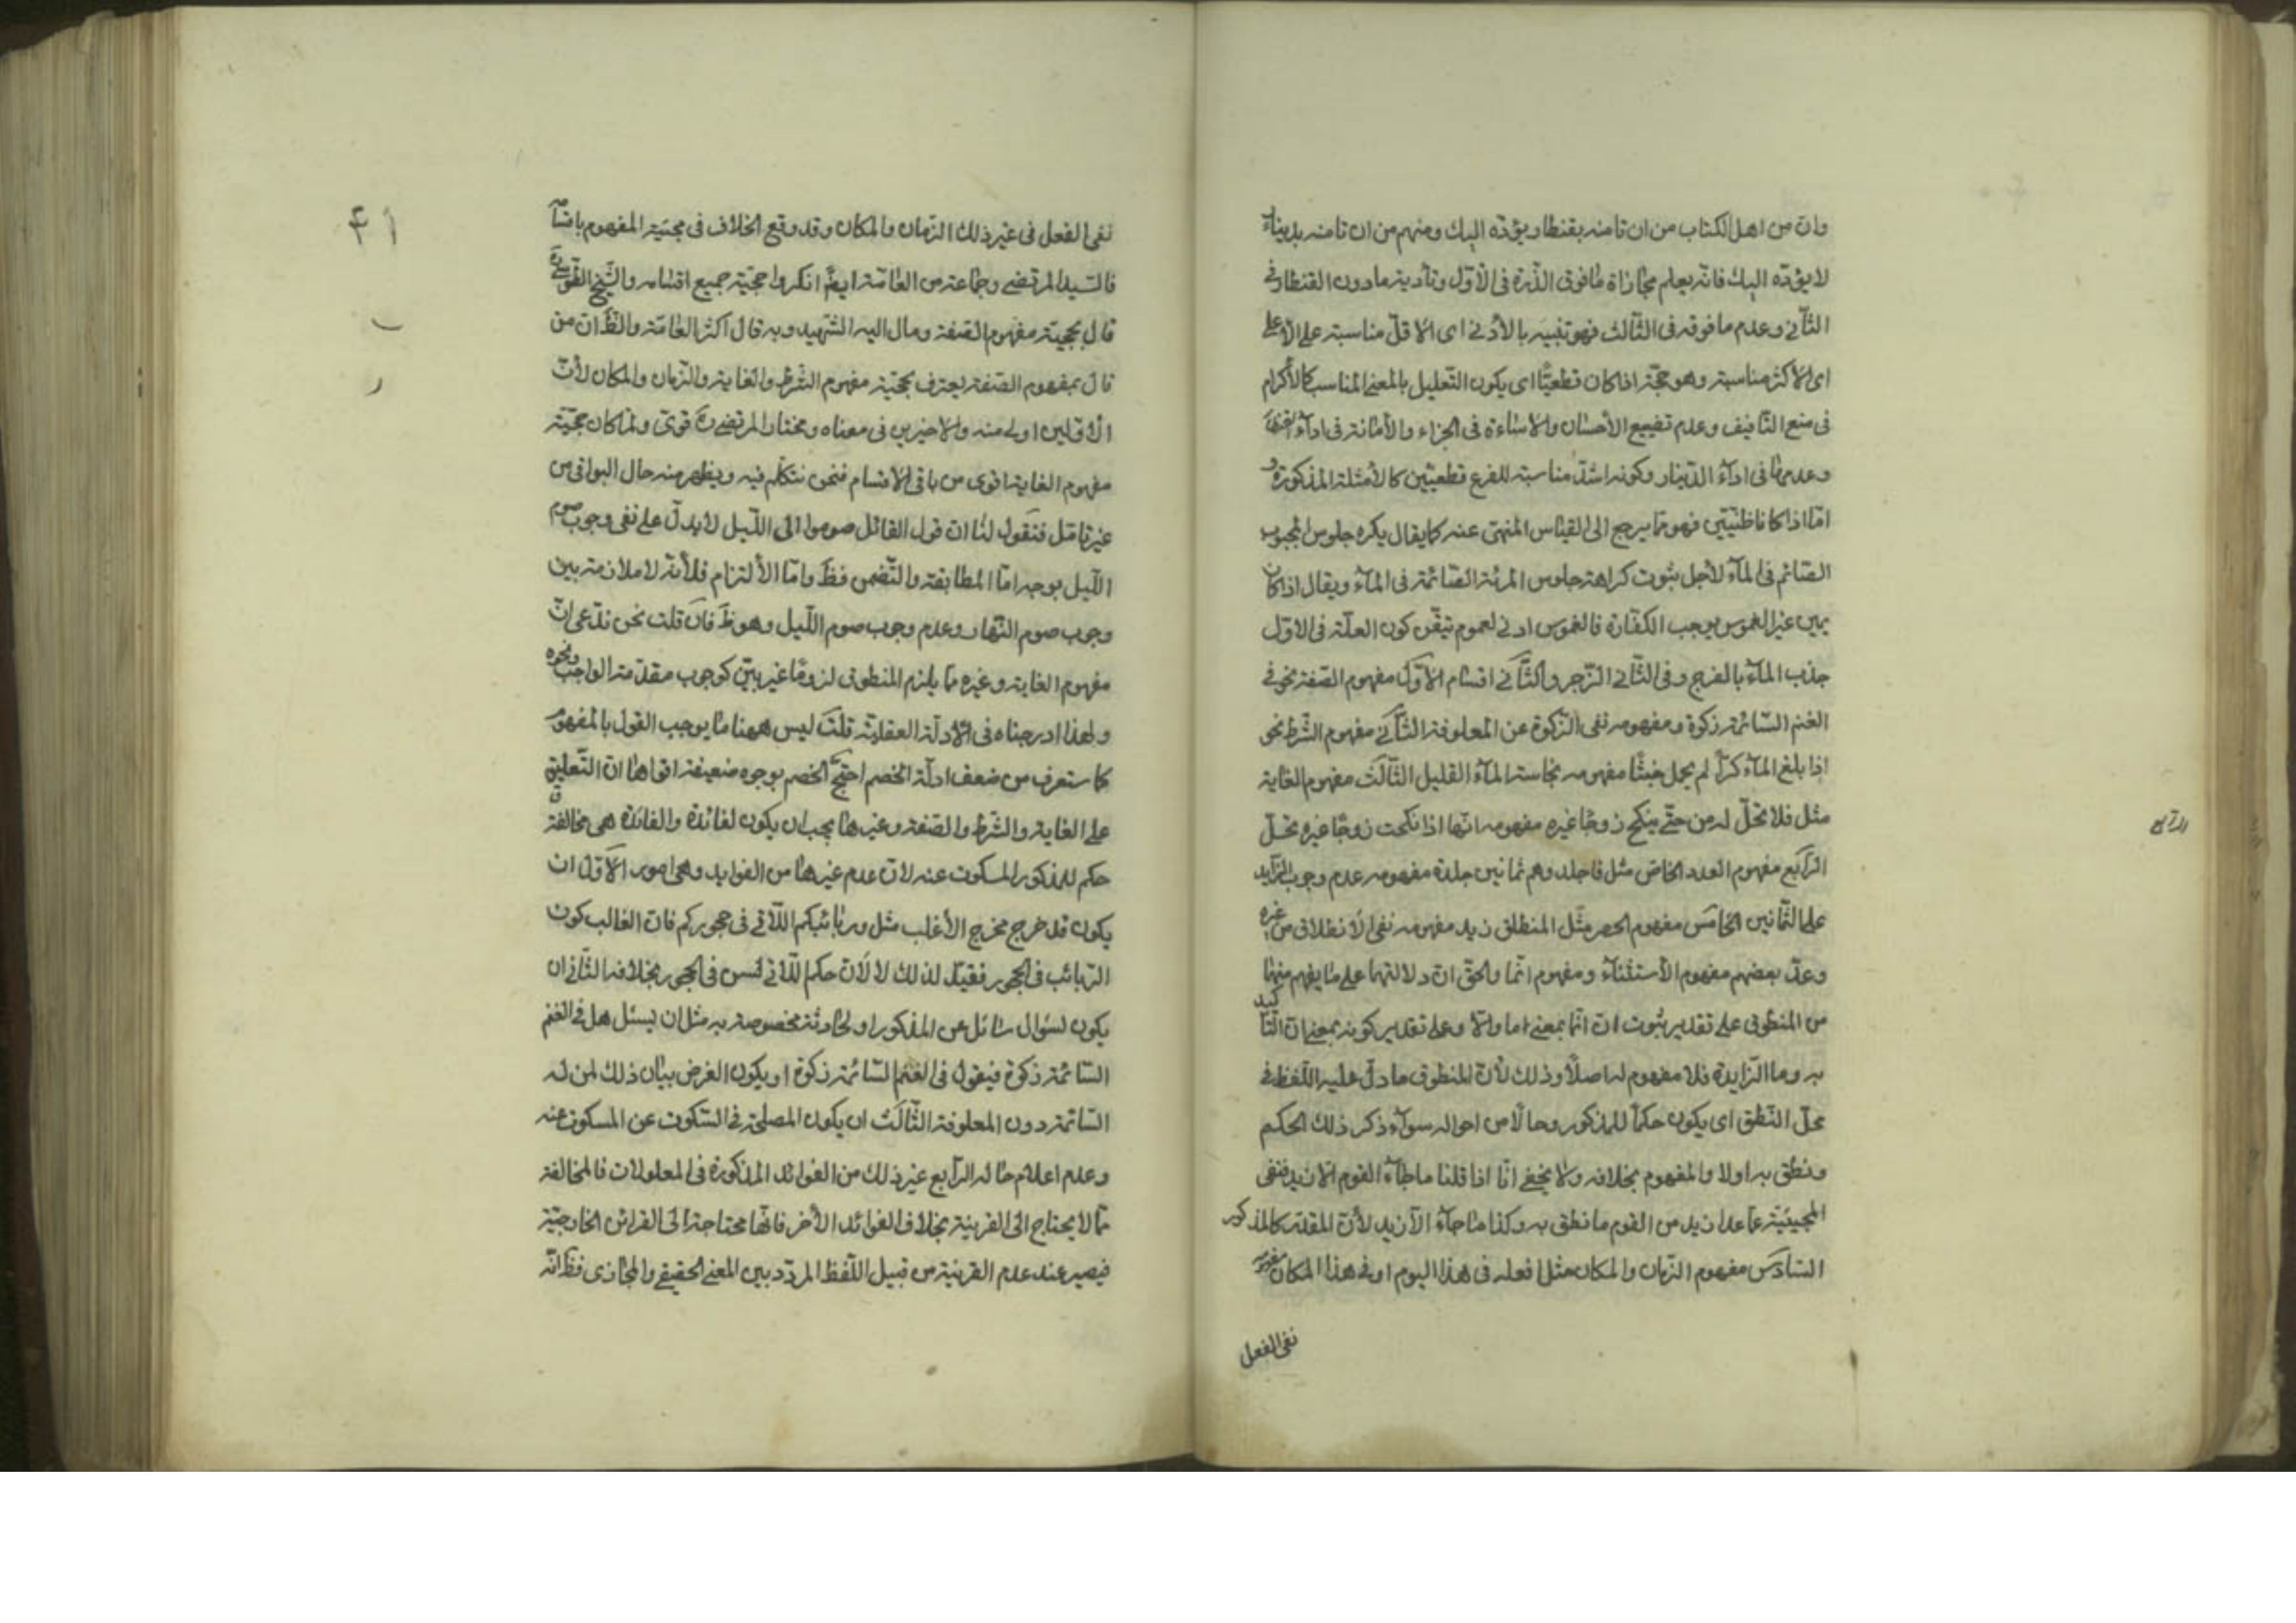 وان من اهل الكتاب من ان تامنه بقنطار يؤدّه اليك ومنهم من ان تامنه بدينار
لا يؤدّه اليك فانّه يعلم مجازاة ما فوق الذّرة فى الأوّل وتأدية ما دون القنطار فى
الثّانى وعدم ما فوقه فى الثّالث فهو تنبيه بالأدنى اى الاقلّ مناسبة على الاعلى
اى الاكثر مناسبة وهو حجّة اذا كان قطعيّا اى يكون التّعليل بالمعنى المناسب كالأكرام
فى منع التّافيف وعدم تضييع الأحسان والاسائة فى الجزاء والأمانة فى اداء القنطار
وعدمها فى اداء الدّينار وكونه اشدّ مناسبة للفرع قطعيّين كالأمثلة المذكورة و
امّا اذا كانا ظنّيّين فهو ممّا يرجع الى القياس المنهىّ عنه كما يقال يكره جلوس المجبوب
الصّائم فى الماء لأجل ثبوت كراهة جلوس المرئة الصّائمة فى الماء ويقال اذا كان
يمين غير الغموس يوجب الكفّارة فالغموس اولى لعموم تيقّن كون العلّة فى الاوّل
جذب الماء بالفرج وفى الثّانى الزّجر والثّانى اقسام الاوّل مفهوم الصّفة نحو فى
الغنم السّائمة زكوة ومفهومه نفى الزّكوة عن المعلوفة الثّانى مفهوم الشّرط نحو
اذا بلغ الماء كرّاً لم يحمل خبثا مفهومه نجاسة الماء القليل الثّالث مفهوم الغاية
مثل فلا تحلّ له من حتّى ينكح زوجا غيره مفهومه انّها اذا نكحت زوجا غيره تحلّ
الرّابع مفهوم العدد الخاصّ مثل فاجلدوهم ثمانين جلدة مفهومه عدم وجوب الزّايد
على الثّمانين الخامس مفهوم الحصر مثل المنطلق زيد مفهومه نفى الانطلاق من غيره
وعدّ بعضهم مفهوم الأستثناء ومفهوم انّما والحقّ ان دلالتهما على ما يفهم منهما
من المنطوق على تقدير ثبوت ان انّما بمعنى ما والّا وعلى تقدير كونه بمعنى ان التّاكيد
به وما الزّايدة فلا مفهوم له اصلاً وذلك لأنّ المنطوق ما دلّ عليه اللّفظ فى
محلّ النّطق اى يكون حكماً للمذكور وحالًا من احواله سواء ذكر ذلك الحكم
ونطق به اولا والمفهوم بخلافه ولا يخفى انّا اذا قلنا ما جاء القوم الّا زيد فنفى
المجيئيّة عمّا عدا زيد من القوم ما نطق به وكذا ما جاء الّا زيد لأنّ المقدّر كالمذكور
السّادس مفهوم الزّمان والمكان مثل افعله فى هذا اليوم او فى هذا المكان مفهومه
نفى الفعل
الرابع
نفى الفعل فى غير ذلك الزّمان والمكان وقد وقع الخلاف فى حجيّة المفهوم باقسامه
فالسّيد المرتضى وجماعة من العامّة ايضًا انكروا حجيّة جميع اقسامه والشّيخ الطّوسى ره
قال بحجيّة مفهوم الصّفة ومال اليه الشّهيد وبه قال اكثر العامّة والظّ ان من
قال بمفهوم الصّفة يعترف بحجيّة مفهوم الشّرط والغاية والزّمان والمكان لأنّ
الأوّلين اولى منه والاخيرين فى معناه ومختار المرتضى ره قوىّ ولمّا كان حجيّة
مفهوم الغاية اقوى من باقى الاقسام فنحن نتكلّم فيه ويظهر منه حال البواقى من
غير تامّل فنقول لنا ان قول القائل صوموا الى اللّيل لا يدلّ على نفى وجوب صوم
اللّيل بوجه امّا المطابقة والتّضمن فظّ وامّا الألتزام فلأنّه لا ملازمة بين
وجوب صوم النّهار وعدم وجوب صوم اللّيل وهو ظّ فان قلت نحن ندّعى انّ
مفهوم الغاية وغيره ممّا يلزم المنطوق لزوما غير بيّن كوجوب مقدّمة الواجب ونحوه
ولهذا ادرجناه فى الأدلّة العقليّة قلت ليس ههنا ما يوجب القول بالمفهوم
كما ستعرف من ضعف ادلّة الخصم احتجّ الخصم بوجوه ضعيفة اقواها ان التّعليق
على الغاية والشّرط والصّفة وغيرها يجب ان يكون لفائدة والفائدة هى مخالفة
حكم للمذكور المسكوت عنه لان عدم غيرها من الفوايد وهى امور الأوّل ان
يكون قد خرج مخرج الأغلب مثل وربائبكم اللّاتى فى حجوركم فان الغالب كون
الرّبائب فى الحجور فقيّد لذلك لا لأن حكم اللّاتى لسن فى الحجور بخلافه الثّانى ان
يكون لسؤال سائل عن المذكور او لحادثة مخصوصة به مثل ان يسئل هل فى الغنم
السّائمة زكوة فيقول فى الغنم السّائمة زكوة او يكون الغرض بيان ذلك لمن له
السّائمة دون المعلوفة الثّالث ان يكون المصلحة فى السّكوت عن المسكوت عنه
وعدم اعلام حاله الرّابع غير ذلك من الفوائد المذكورة فى المطولات فالمخالفة
ممّا لا يحتاج الى القرينة بخلاف الفوائد الأخر فانّها محتاجة الى القرائن الخارجيّة
فيصير عند عدم القرينة من قبيل اللّفظ المردّد بين المعنى الحقيقى والمجازى فظّ انّه
۴۱